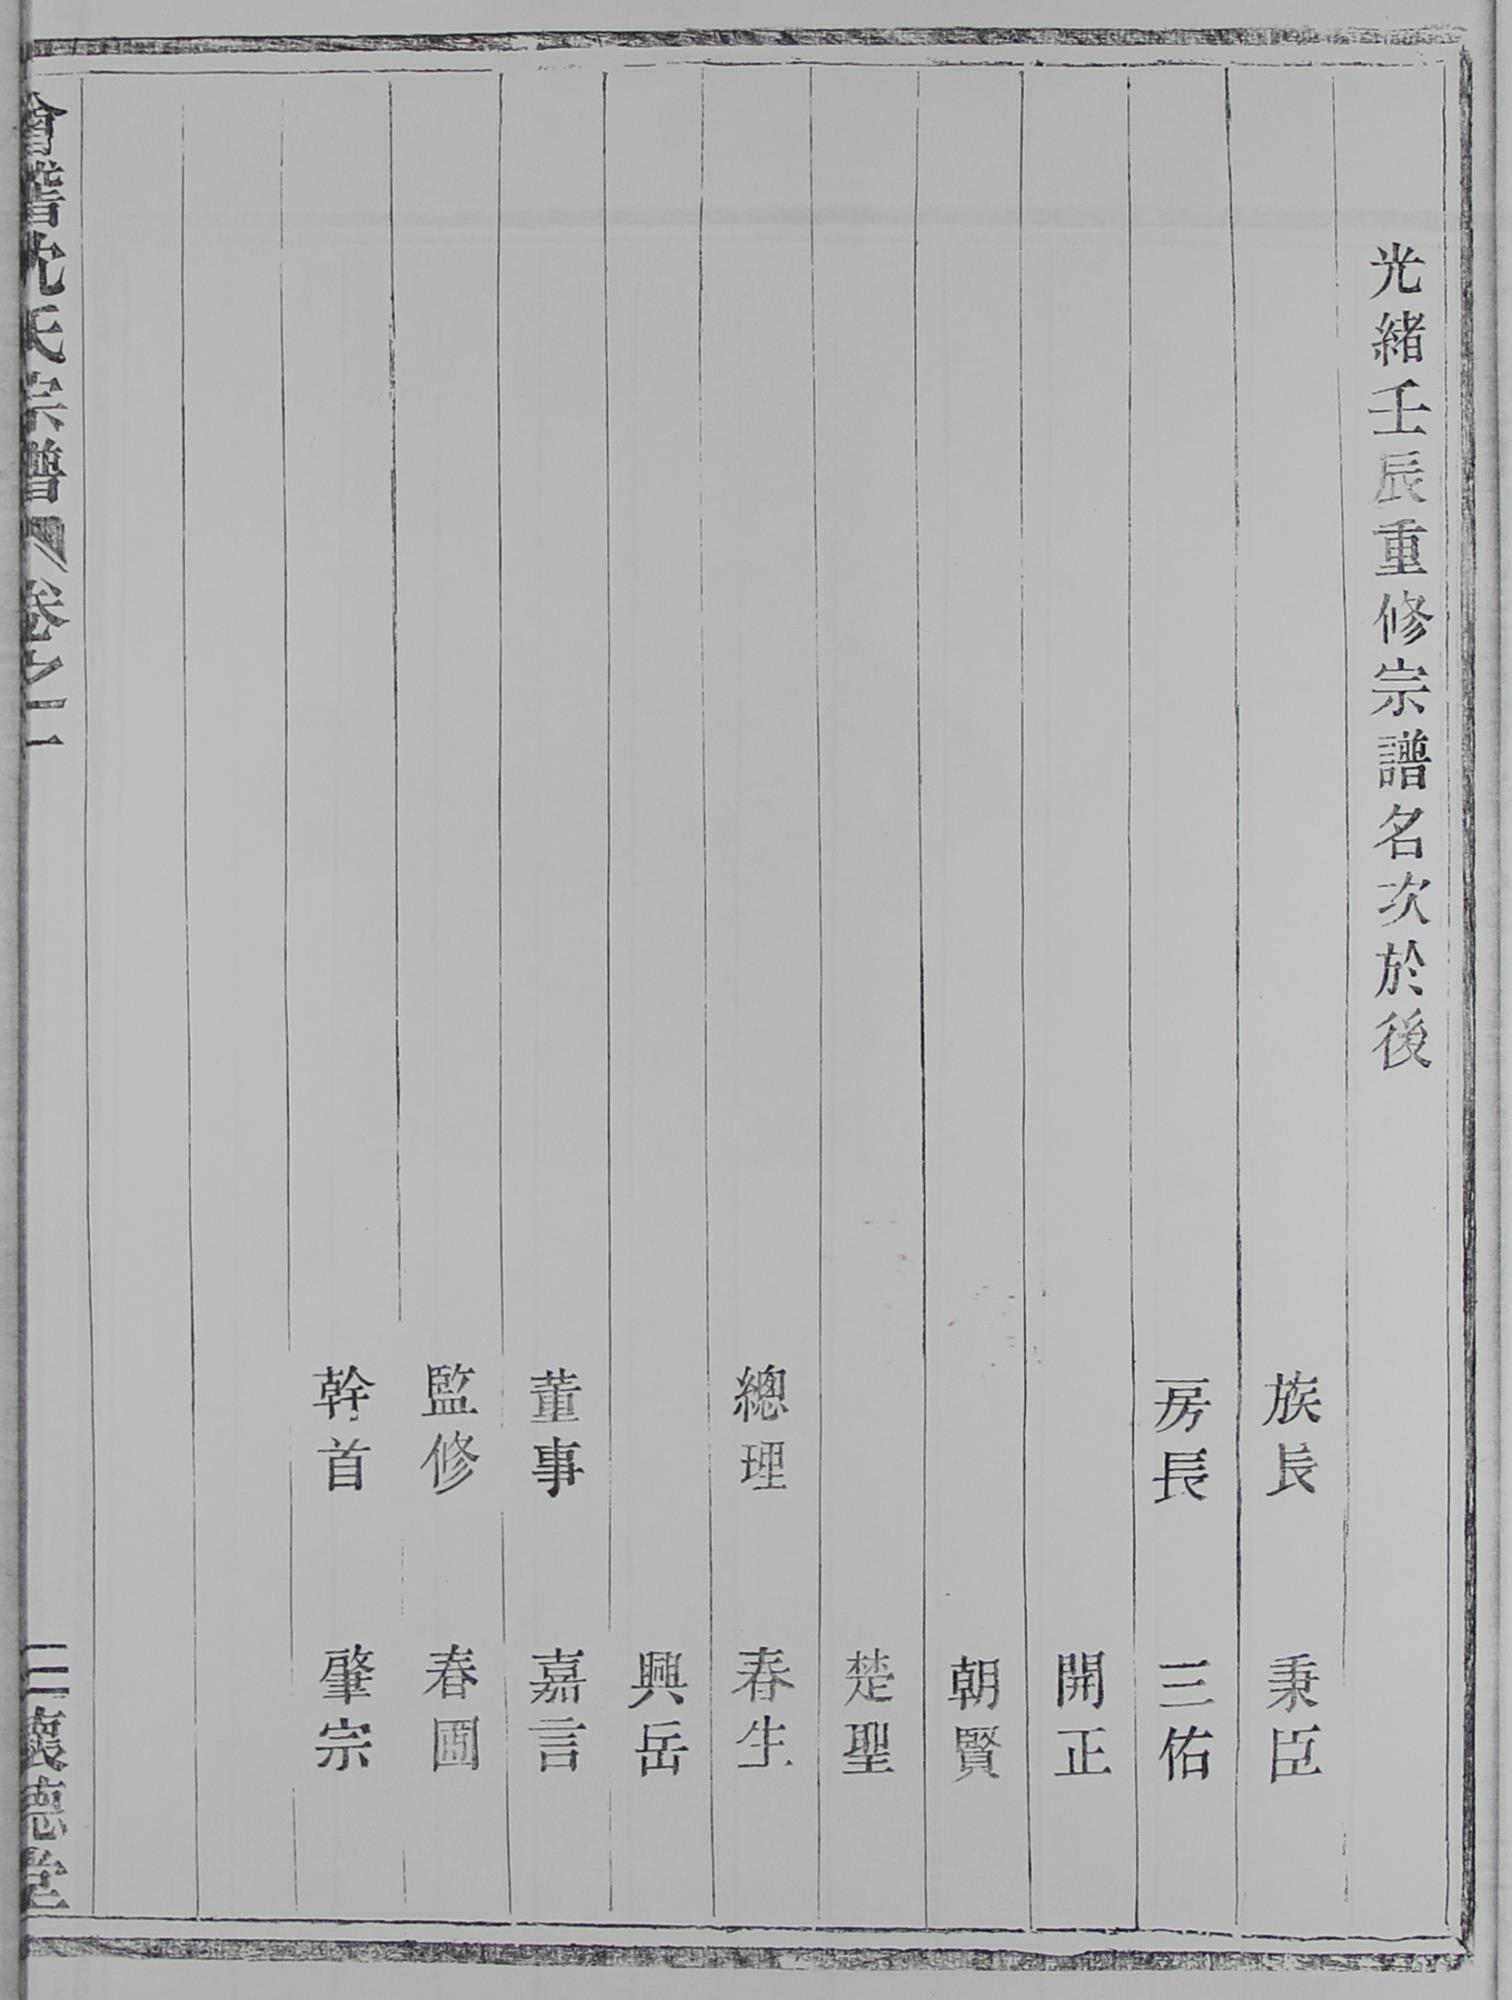 光緒壬辰重修宗譜名次於後
族長 秉臣
房長 三佑
開正
朝賢
楚聖
總理 春生
興岳
董事 嘉言
監修 春圃
幹首 肇宗
會稽沈氏宗譜 卷之一 三 懷德堂